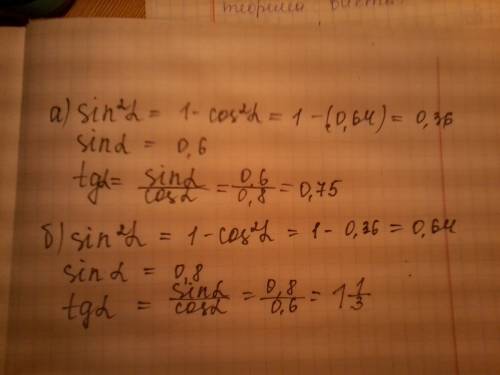 теорема
а) sin²α = 1 - cos²α = 1 - (0,64) = 0,36
sinα = 0,6
tgα = sinα/cosα = 0,6/0,8 = 0,75
б) sin²α = 1 - cos²α = 1 - 0,36 = 0,64
sinα = 0,8
tgα = sinα/cosα = 0,8/0,6 = 1 1/3